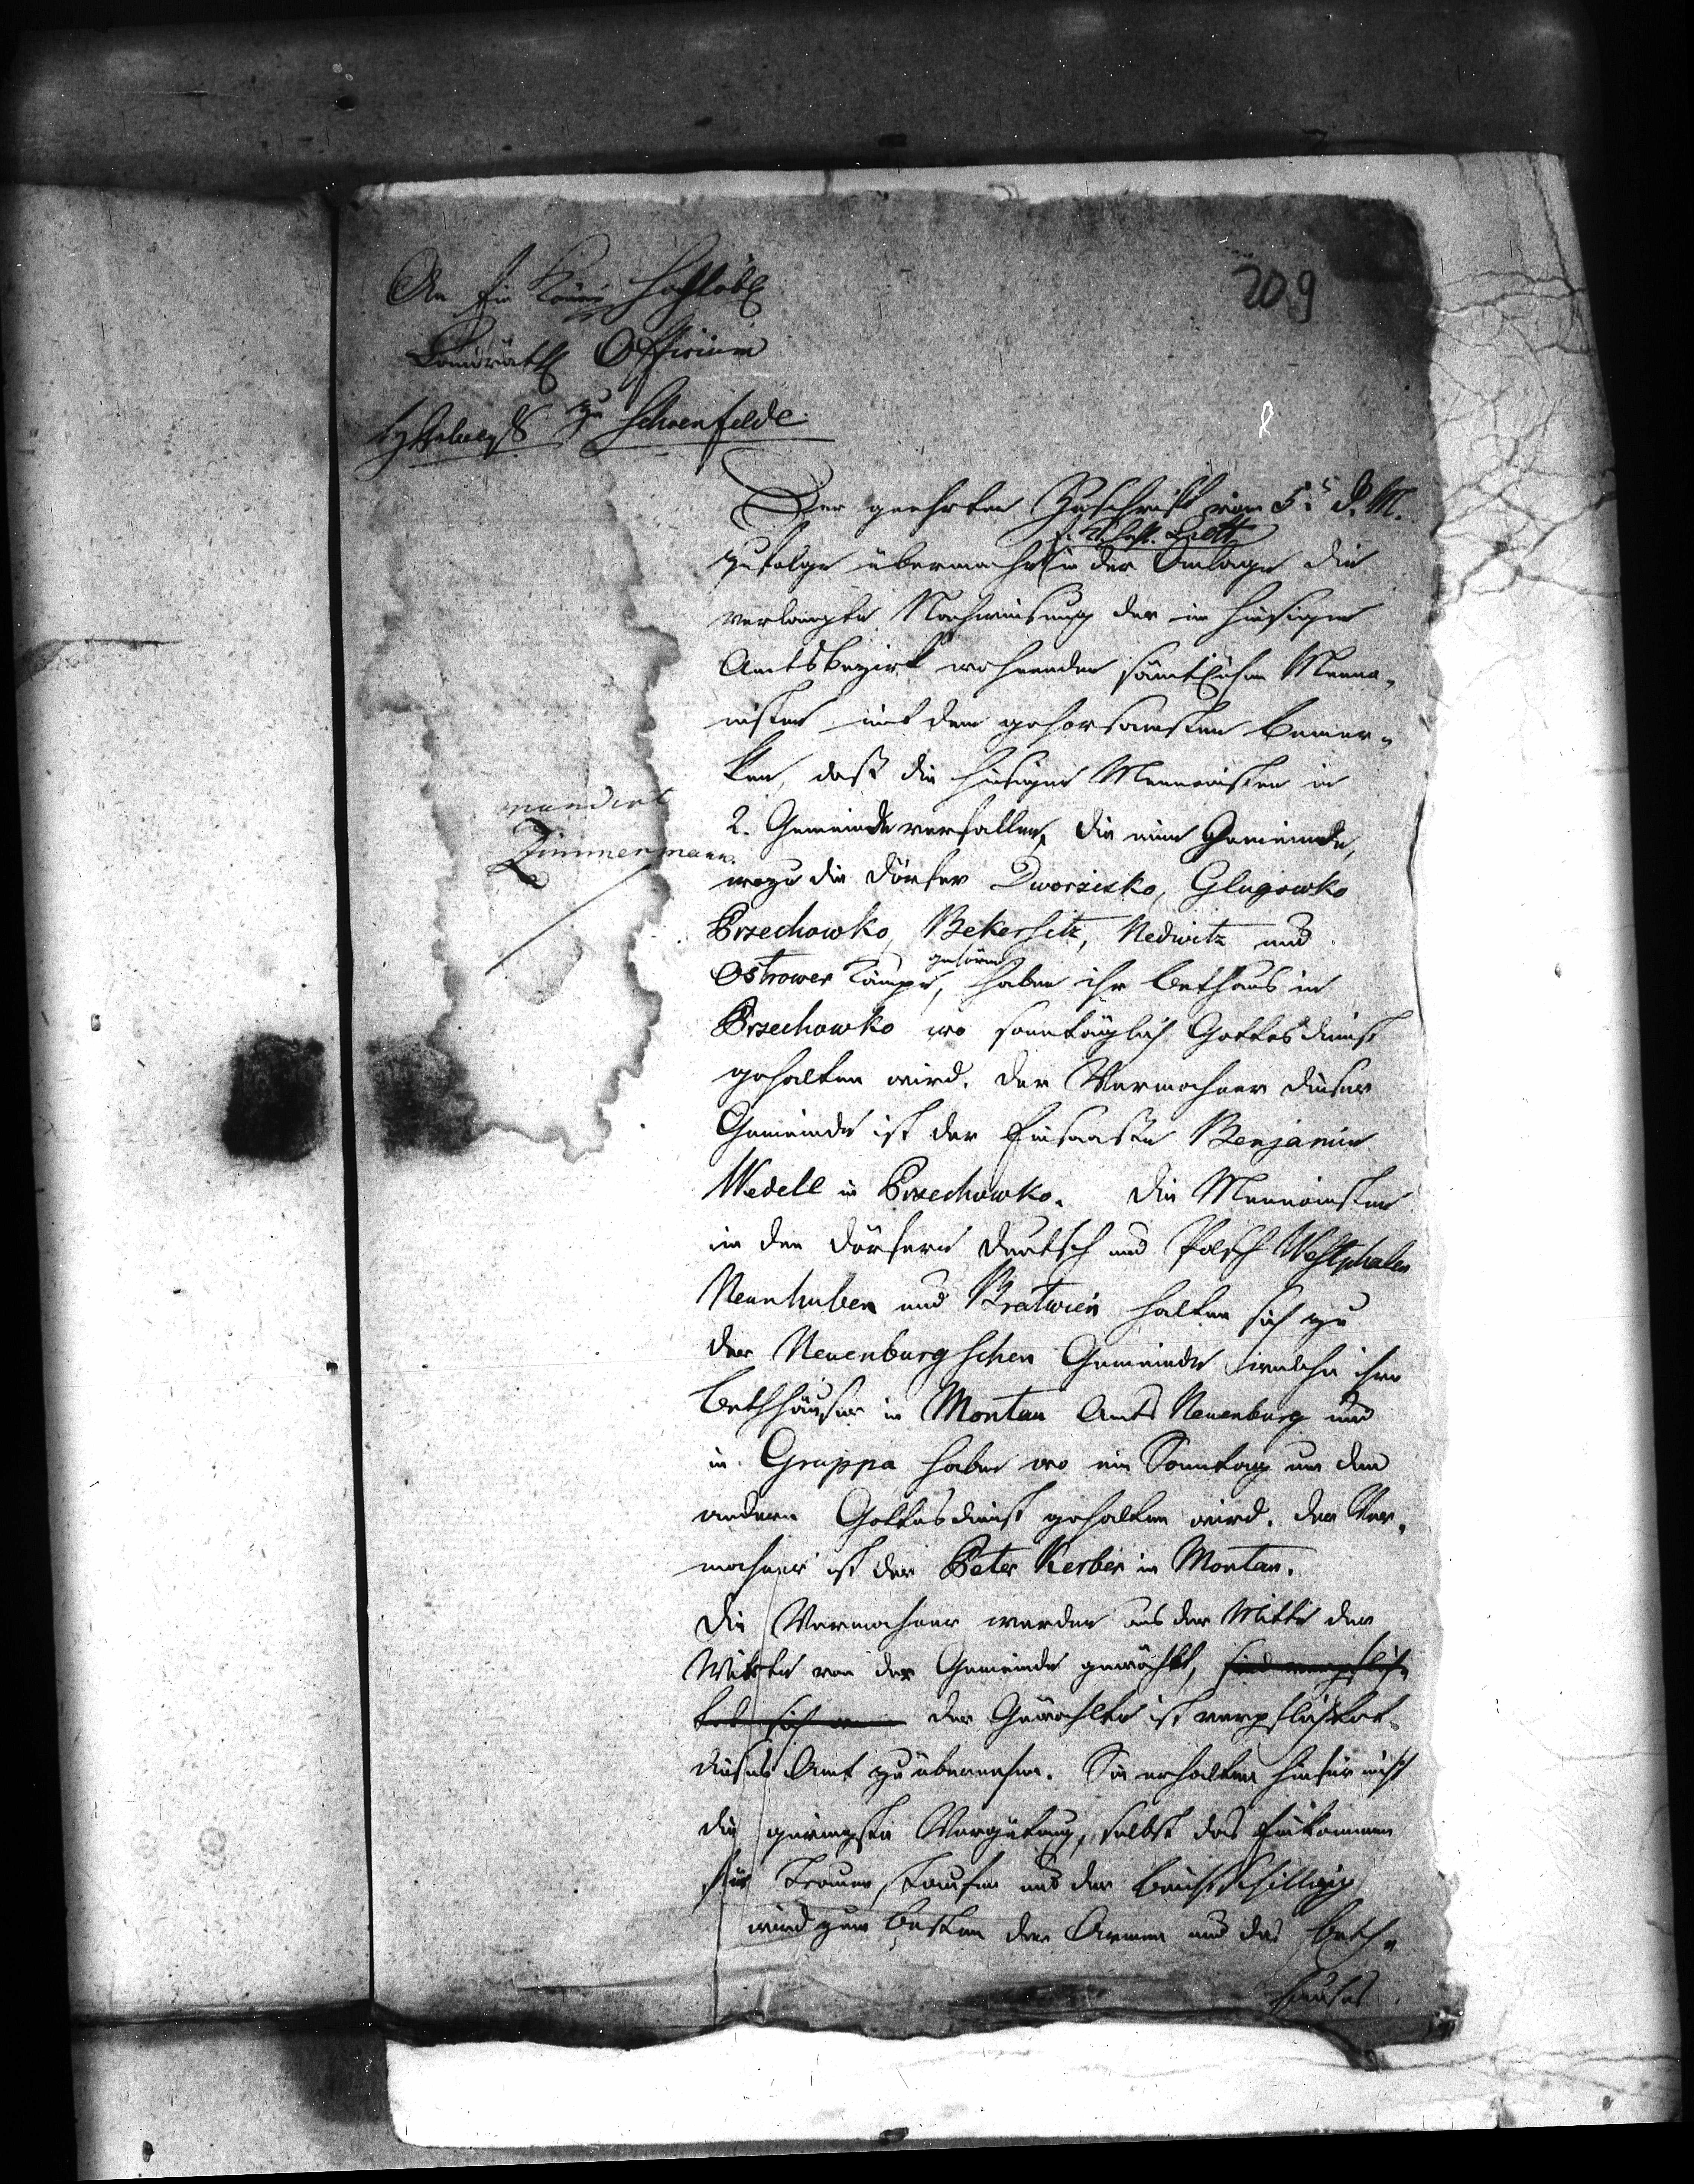 209
An Ein Königl. Hochlöbl.
Landräthl. Officium
zu Schoenfelde
Der geehrten Zuschrift vom 5. d. M.
zufolge übermache in der Anlage die
verlangte Nachweisung der im hiesigen
Amtsbezirk wohnenden sämtlichen Menno-
nisten mit dem gehorsamsten Bemer-
ken, daß die hiesigen Mennonisten in
2. Gemeinde verfallen, die eine Gemeinde,
mundirt
Zimmermann.
wozu die Dörfer Dworzisko, Glugowko
Przechowko, Bekersitz, Nedwitz und
gehören
Ostrower Kämpe, haben ihr Bethaus in
Przechowko wo sonntäglich Gottesdienst
gehalten wird. Der Vermahner dieser
Gemeinde ist der Einsaaße Benjamin
Wedell in Przechowko. Die Mennonisten
in den Dörfern Deutsch und Polsch Westphalen
Neunhuben und Bratwin halten sich zu
der Neuenburgschen Gemeinde welche ihre
Bethhäuser in Montau Amts Neuenburg und
in Gruppa haben wo ein Sonntag um den
andern Gottesdienst gehalten wird. Der Ver-
mahner ist der Peter Kerber in Montau.
Die Vermahner werden aus der Mitte der
von der Gemeinde gewählt,
der Gewählte ist verpflichtet
dieses Amt zu übernehmen. Sie erhalten hiefür nicht
die geringste Vergütung, selbst das Einkommen
für Trauen, Taufen und der
wird zum Besten der Armen und des Beth-
hauses